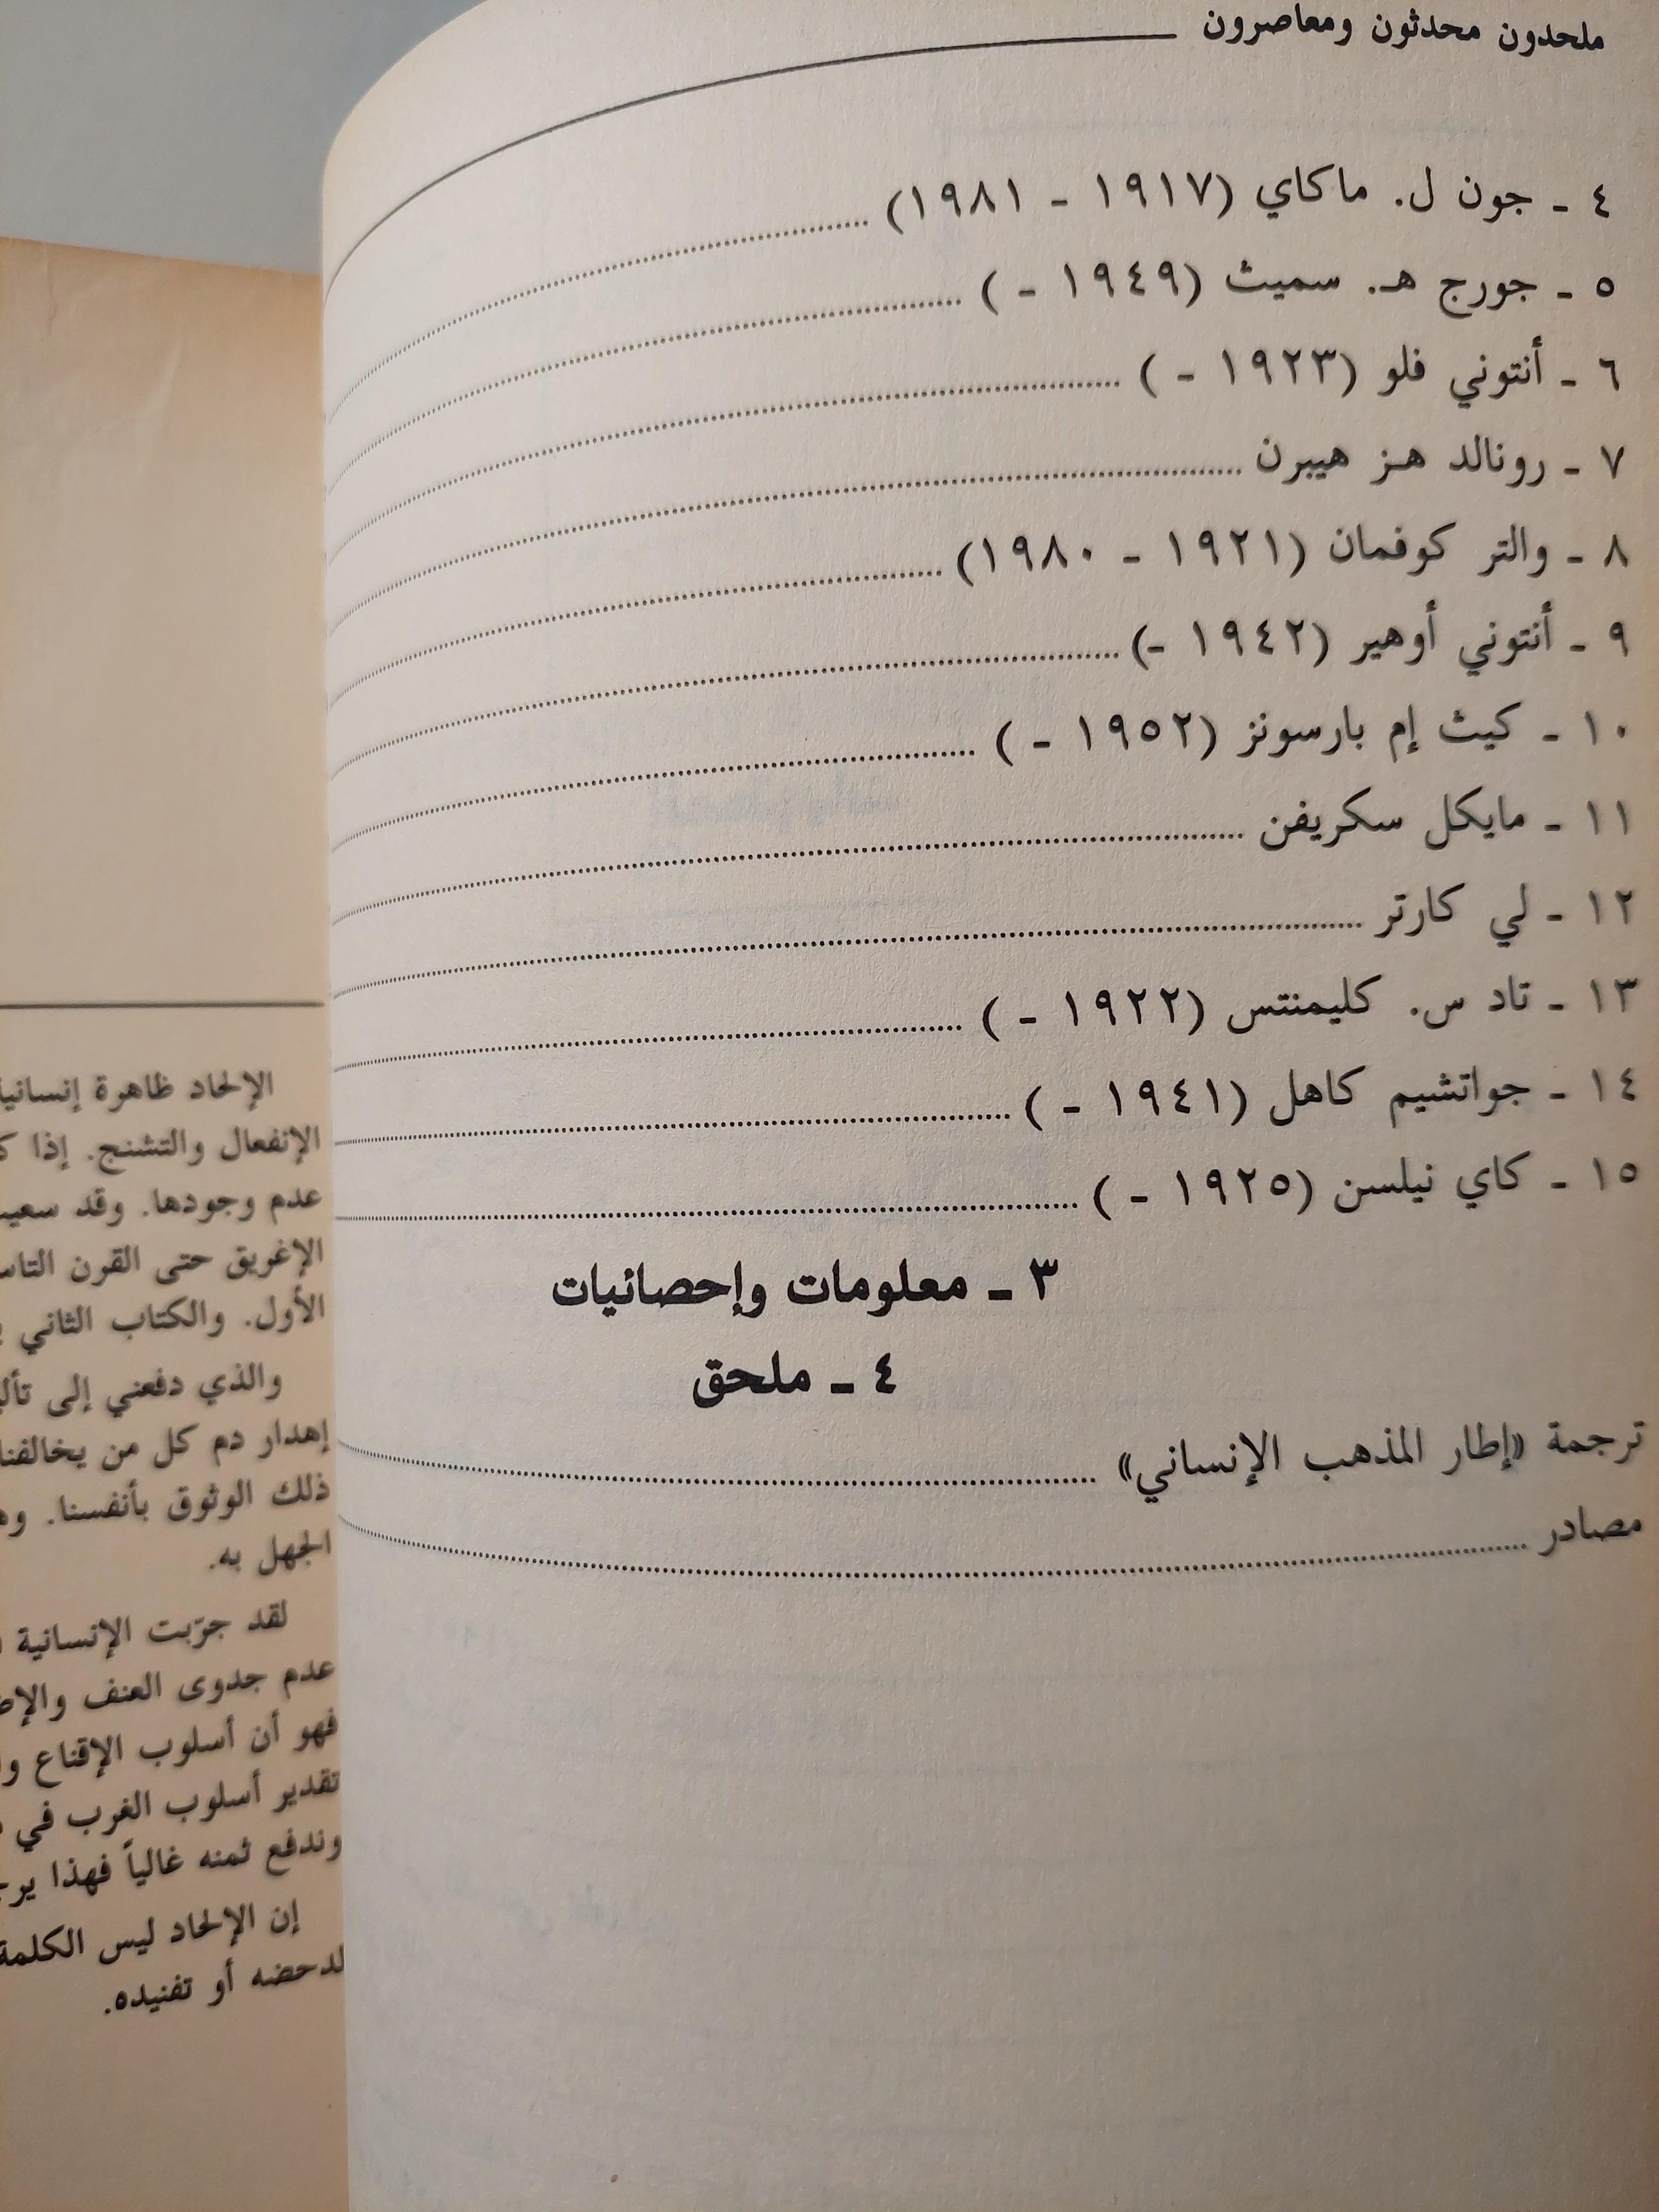 ملحدون محدثون ومعاصرون
٤ ـ جون ل. ماكاي (١٩١٧ ـ ١٩٨١)
٥ ـ جورج هـ. سميث (١٩٤٩ ـ )
٦ ـ أنتوني فلو (١٩٢٣ ـ )
٧ ـ رونالد هـز هيبرن
٨ ـ والتر كوفمان (١٩٢١ ـ ١٩٨٠)
٩ ـ أنتوني أوهير (١٩٤٢ ـ)
١٠ ـ كيث إم بارسونز (١٩٥٢ ـ )
١١ ـ مايكل سكريفن
١٢ ـ لي كارتر
١٣ ـ تاد س. كليمنتس (١٩٢٢ ـ )
١٤ ـ جواتشيم كاهل (١٩٤١ ـ )
١٥ ـ كاي نيلسن (١٩٢٥ ـ )
٣ ـ معلومات وإحصائيات
٤ ـ ملحق
ترجمة «إطار المذهب الإنساني»
مصادر
الإلحاد ظاهرة
الإنفعال والتشنج. إذا
عدم وجودها. وقد
الإغريق حتى القرن
الأول. والكتاب الثاني
والذي دفعني إلى
إهدار دم كل من
ذلك الوثوق بأنفسنا.
الجهل به.
لقد جرّبت الإنسانية
عدم جدوى العنف
فهو أن أسلوب الإقناع
تقدير أسلوب الغرب في
وندفع ثمنه غالياً فهذا
إن الإلحاد ليس الكلمة
لدحضه أو تفنيده.